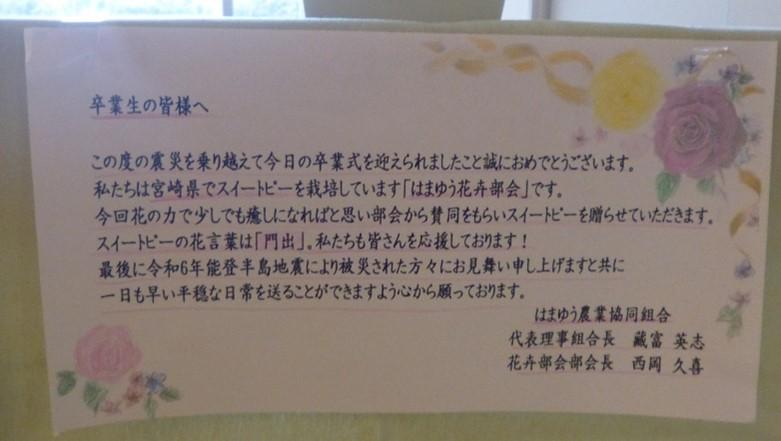 卒業生の皆様へ
この度の震災を乗り越えて今日の卒業式を迎えられましたこと誠におめでとうございます。
私たちは宮崎県でスイートピーを栽培しています「はまゆう花卉部会」です。
今回花の力で少しでも癒しになればと思い部会から賛同をもらいスイートピーを贈らせていただきます。
スイートピーの花言葉は「門出」。私たちも皆さんを応援しております！
最後に令和6年能登半島地震により被災された方々にお見舞い申し上げますと共に
一日も早い平穏な日常を送ることができますよう心から願っております。
はまゆう農業協同組合
代表理事組合長 藏富 英志
花卉部会部会長 西岡 久喜